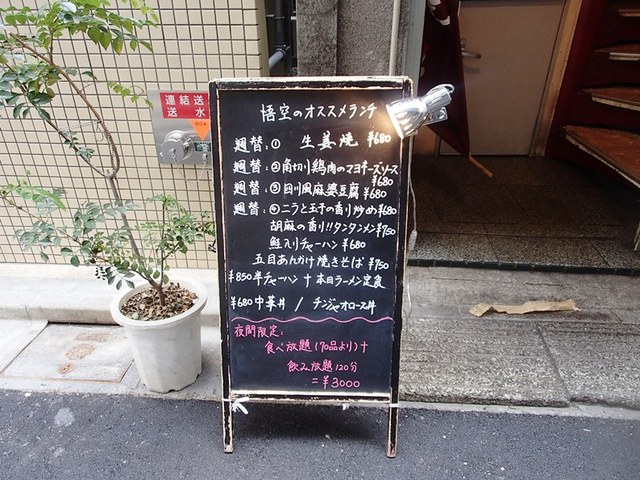 連結送
送水
悟空のオススメランチ
週替:① 生姜焼 ¥680
週替:②角切り鶏肉のマヨネーズソース
¥680
週替:③四川風麻婆豆腐 ¥680
週替:④ニラと玉子の香り炒め¥680
胡麻の香り!!タンタンメン¥750
鮭入りチャーハン ¥680
五目あんかけ焼きそば ¥750
¥850半チャーハン + 本日ラーメン定食
¥680中華丼 / チンジャオロース丼
夜間限定:
食べ放題(70品より)+
飲み放題120分
=¥3000